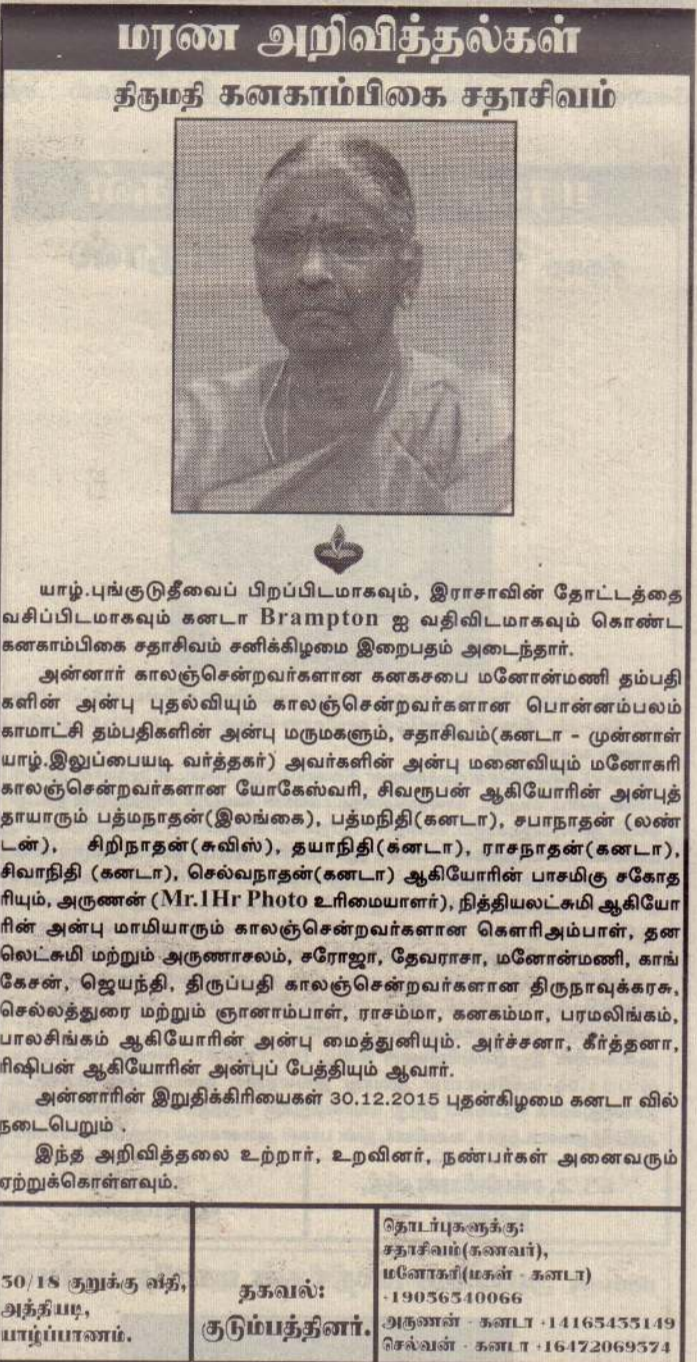 மரண அறிவித்தல்கள்
திருமதி கனகாம்பிகை சதாசிவம்
யாழ்.புங்குடுதீவைப் பிறப்பிடமாகவும், இராசாவின் தோட்டத்தை
வசிப்பிடமாகவும் கனடா Brampton ஐ வதிவிடமாகவும் கொண்ட
கனகாம்பிகை சதாசிவம் சனிக்கிழமை இறைபதம் அடைந்தார்.
அன்னார் காலஞ்சென்றவர்களான கனகசபை மனோன்மணி தம்பதி
களின் அன்பு புதல்வியும் காலஞ்சென்றவர்களான பொன்னம்பலம்
காமாட்சி தம்பதிகளின் அன்பு மருமகளும், சதாசிவம்(கனடா - முன்னாள்
யாழ்.இலுப்பையடி வர்த்தகர்) அவர்களின் அன்பு மனைவியும் மனோகரி
காலஞ்சென்றவர்களான யோகேஸ்வரி, சிவரூபன் ஆகியோரின் அன்புத்
தாயாரும் பத்மநாதன்(இலங்கை), பத்மநிதி(கனடா), சபாநாதன் (லண்
டன்), சிறிநாதன்(சுவிஸ்), தயாநிதி(கனடா), ராசநாதன்(கனடா),
சிவாநிதி (கனடா), செல்வநாதன்(கனடா) ஆகியோரின் பாசமிகு சகோத
ரியும், அருணன் (Mr.1Hr Photo உரிமையாளர்), நித்தியலட்சுமி ஆகியோ
ரின் அன்பு மாமியாரும் காலஞ்சென்றவர்களான கௌரிஅம்பாள், தன
லெட்சுமி மற்றும் அருணாசலம், சரோஜா, தேவராசா, மனோன்மணி, காங்
கேசன், ஜெயந்தி, திருப்பதி காலஞ்சென்றவர்களான திருநாவுக்கரசு,
செல்லத்துரை மற்றும் ஞானாம்பாள், ராசம்மா, கனகம்மா, பரமலிங்கம்,
பாலசிங்கம் ஆகியோரின் அன்பு மைத்துனியும். அர்ச்சனா, கீர்த்தனா,
ரிஷிபன் ஆகியோரின் அன்புப் பேத்தியும் ஆவார்.
அன்னாரின் இறுதிக்கிரியைகள் 30.12.2015 புதன்கிழமை கனடா வில்
நடைபெறும் .
இந்த அறிவித்தலை உற்றார், உறவினர், நண்பர்கள் அனைவரும்
ஏற்றுக்கொள்ளவும்.
50/18 குறுக்கு வீதி,
அத்தியடி,
யாழ்ப்பாணம்.
தகவல்:
குடும்பத்தினர்.
தொடர்புகளுக்கு:
சதாசிவம்(கணவர்),
மனோகரி(மகள் - கனடா)
+19056540066
அருணன் - கனடா +14165455149
செல்வன் - கனடா +16472069574